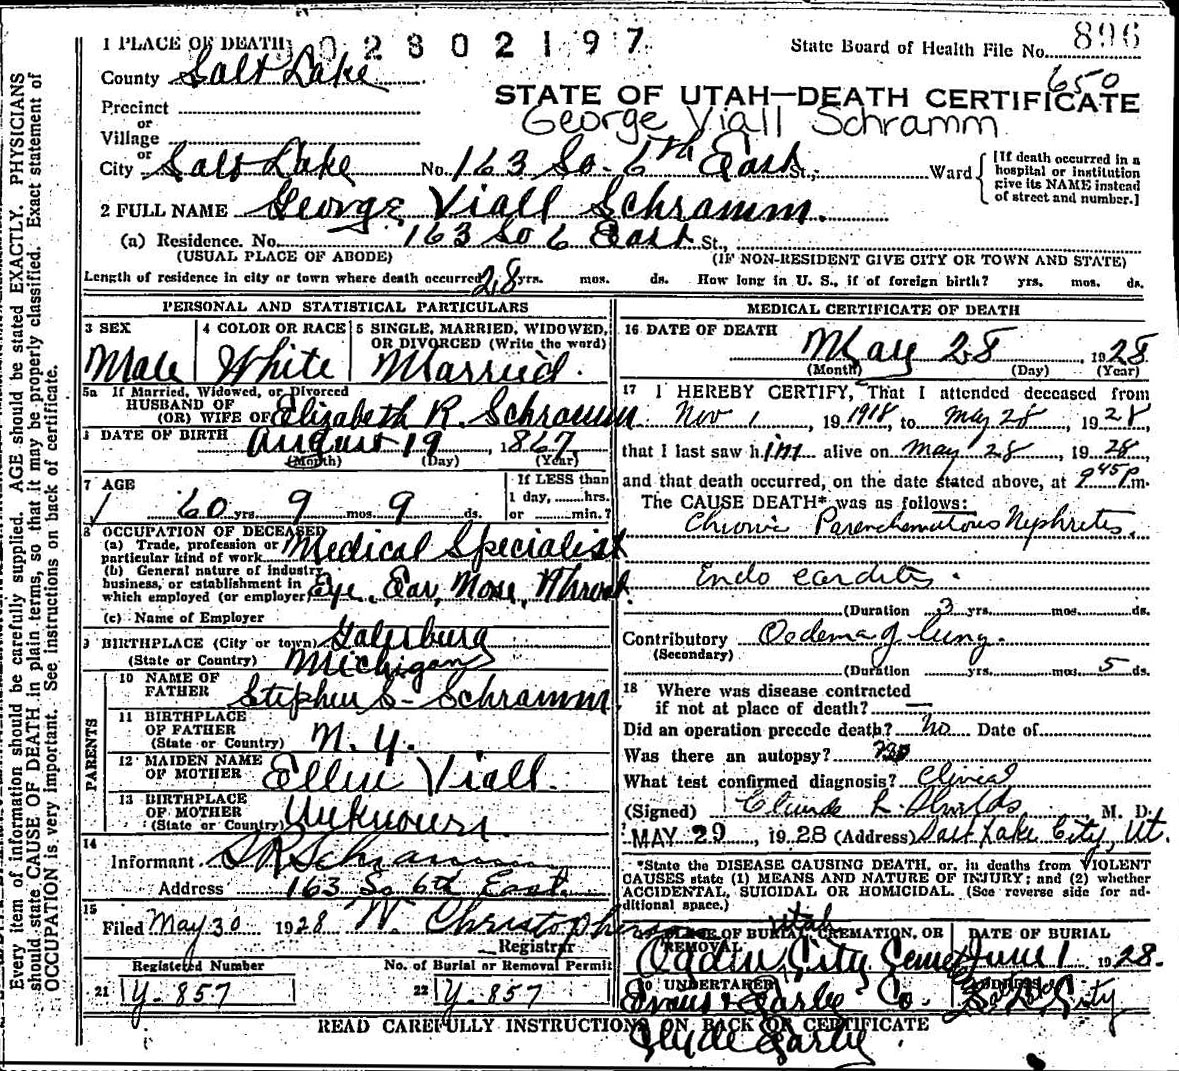 Every item of information should be carefully supplied. AGE should be stated EXACTLY. PHYSICIANS
should state CAUSE OF DEATH in plain terms, so that it may be properly classified. Exact statement of
OCCUPATION is very important. See instructions on back of certificate.
02802197
State Board of Health File No. 896
650
1 PLACE OF DEATH
County Salt Lake
STATE OF UTAH—DEATH CERTIFICATE
George Viall Schramm
Precinct
or
Village
or
City Salt Lake No. 163 So. 6th East St., Ward
[If death occurred in a
hospital or institution
give its NAME instead
of street and number.]
2 FULL NAME George Viall Schramm.
(a) Residence. No. 163 So 6 East St.,
(USUAL PLACE OF ABODE) (IF NON-RESIDENT GIVE CITY OR TOWN AND STATE)
Length of residence in city or town where death occurred 28 yrs. mos. ds. How long in U. S., if of foreign birth? yrs. mos. ds.
PERSONAL AND STATISTICAL PARTICULARS
3 SEX Male
4 COLOR OR RACE White
5 SINGLE, MARRIED, WIDOWED, OR DIVORCED (Write the word) Married.
5a If Married, Widowed, or Divorced
HUSBAND OF
(OR) WIFE OF Elizabeth R. Schramm
DATE OF BIRTH August 19, 1867
(Month) (Day) (Year)
7 AGE 60 yrs. 9 mos. 9 ds.
If LESS than
1 day, hrs.
or min.?
8 OCCUPATION OF DECEASED
(a) Trade, profession or
particular kind of work Medical Specialist
(b) General nature of industry,
business, or establishment in
which employed (or employer) Eye, Ear, Nose, & Throat
(c) Name of Employer
9 BIRTHPLACE (City or town) Galesburg
(State or Country) Michigan
PARENTS
10 NAME OF
FATHER Stephen S. Schramm
11 BIRTHPLACE
OF FATHER
(State or Country) N. Y.
12 MAIDEN NAME
OF MOTHER Ellen Viall.
13 BIRTHPLACE
OF MOTHER
(State or Country) Unknown.
14
Informant S R Schramm
Address 163 So 6th East.
15
Filed May 30 1928 W. Christopherson
Registrar
Registered Number
21 Y-857
No. of Burial or Removal Permit
22 Y-857
MEDICAL CERTIFICATE OF DEATH
16 DATE OF DEATH
May 28, 1928
(Month) (Day) (Year)
17 I HEREBY CERTIFY, That I attended deceased from
Nov 1, 19 1918, to May 28, 1928,
that I last saw him alive on May 28, 1928,
and that death occurred, on the date stated above, at 9 45 P.m.
The CAUSE DEATH* was as follows:
Chronic Parenchematous Nephrites.
Endo carditis.
(Duration 3 yrs. mos. ds.
Contributory Oedema of lung.
(Secondary)
(Duration yrs. mos. 5 ds.
18 Where was disease contracted
if not at place of death? —
Did an operation precede death? No Date of
Was there an autopsy? no
What test confirmed diagnosis? Clinical
(Signed) Claude L. Shields M. D.
MAY 29, 1928 (Address) Salt Lake City, Ut.
*State the DISEASE CAUSING DEATH, or, in deaths from VIOLENT
CAUSES state (1) MEANS AND NATURE OF INJURY; and (2) whether
ACCIDENTAL, SUICIDAL OR HOMICIDAL. (See reverse side for ad-
ditional space.)
PLACE OF BURIAL, CREMATION, OR
REMOVAL Utah
Ogden City Cemetery
DATE OF BURIAL
June 1 1928.
20 UNDERTAKER
Evans & Early Co.
ADDRESS
Salt Lake City
Clyde Early.
READ CAREFULLY INSTRUCTIONS ON BACK OF CERTIFICATE